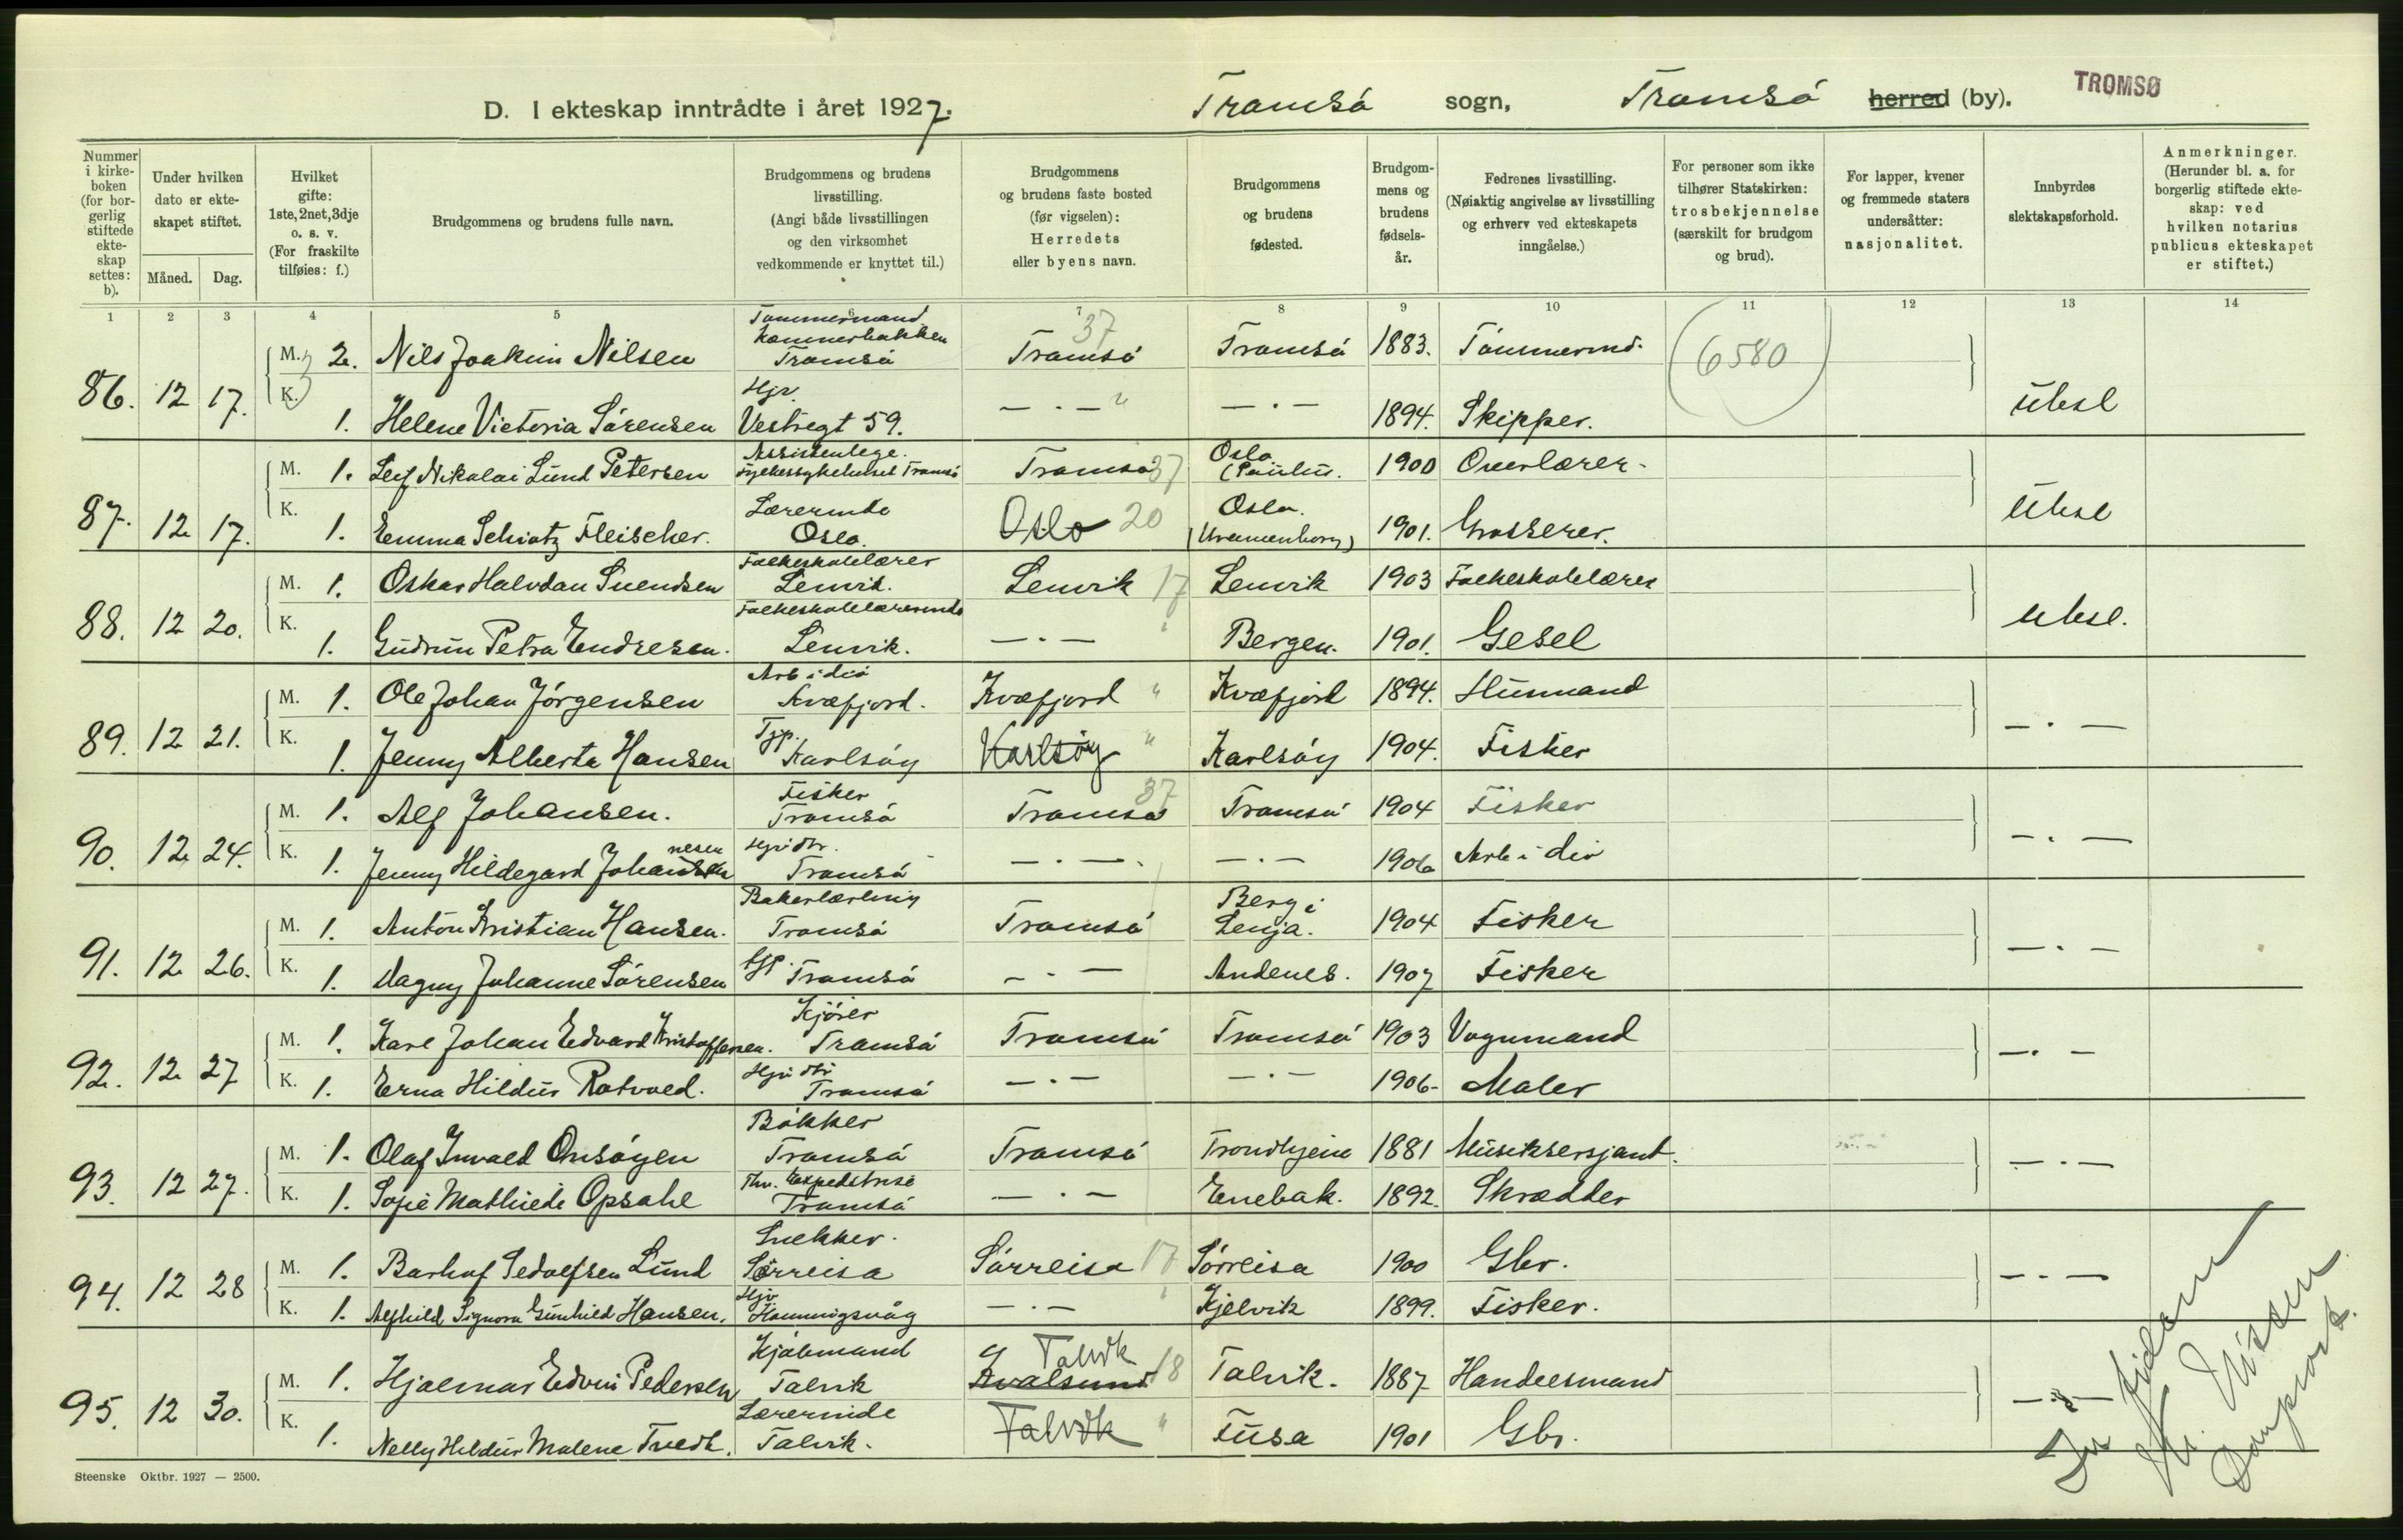 D. I ekteskap inntrådte i året 1927. Tromsö sogn, Tromsö herred (by). TROMSØ
Nummer i kirke-boken (for bor-gerlig stiftede ekte-skap settes: b).
Under hvilken dato er ekte-skapet stiftet.
Måned. Dag.
Hvilket gifte: 1ste, 2net, 3dje o. s. v. (For fraskilte tilføies: f.)
Brudgommens og brudens fulle navn.
Brudgommens og brudens livsstilling. (Angi både livsstillingen og den virksomhet vedkommende er knyttet til.)
Brudgommens og brudens faste bosted (før vigselen): Herredets eller byens navn.
Brudgommens og brudens fødested.
Brudgom-mens og brudens fødsels-år.
Fedrenes livsstilling. (Nøiaktig angivelse av livsstilling og erhverv ved ekteskapets inngåelse.)
For personer som ikke tilhører Statskirken: trosbekjennelse (særskilt for brudgom og brud).
For lapper, kvener og fremmede staters undersåtter: nasjonalitet.
Innbyrdes slektskapsforhold.
Anmerkninger. (Herunder bl. a. for borgerlig stiftede ekte-skap: ved hvilken notarius publicus ekteskapet er stiftet.)
1 2 3 4 5 6 7 8 9 10 11 12 13 14
86. 12 17. M. 2. Nils Joakim Nilsen Tömmermand Tromsö Tromsö 37 Tromsö 1883. Tömmermd. 6580
K. 1. Helene Victoria Sörensen Hjr. Vestregt 59. — . — " — . — 1894. Skipper. Ubsl
87. 12 17. M. 1. Leif Nikolai Lund Petersen Assistentlege. Fylkessykehuset Tromsö Tromsö 37 Oslo (Paulus. 1900 Overlærer.
K. 1. Emma Schiøtz Fleischer. Lærerinde Oslo. Oslo 20 Oslo. (Uranienborg) 1901. Grosserer. Ubsl
88. 12 20. M. 1. Oskar Halvdan Svendsen Folkeskolelærer Lenvik. Lenvik 17 Lenvik 1903 Folkeskolelærer
K. 1. Gudrun Petra Endresen. Folkeskolelærerinde Lenvik. — . — " Bergen. 1901. Gesel Ubsl.
89. 12 21. M. 1. Ole Johan Jörgensen Arb i div Kvæfjord. Kvæfjord " Kvæfjord 1894. Husmand
K. 1. Jenny Alberta Hansen Tjp. Karlsöy Karlsöy " Karlsöy 1904. Fisker — . —
90. 12 24. M. 1. Alf Johansen. Fisker Tromsö Tromsö 37 Tromsö 1904 Fisker
K. 1. Jenny Hildegard Johannesen Hjr dtr. Tromsö — . — . — . — 1906 Arb i div — . —
91. 12 26. M. 1. Anton Kristian Hansen. Bakerlærling Tromsö Tromsö Berg i Senja. 1904 Fisker
K. 1. Dagny Johanne Sörensen tjp. Tromsö — . — Andenes. 1907 Fisker — . —
92. 12 27 M. 1. Karl Johan Edvard Kristoffersen. Kjörer Tromsö Tromsö Tromsö 1903 Vognmand
K. 1. Erna Hildur Rotvold. Hjr dtr Tromsö — . — — . — 1906. Maler — . —
93. 12 27. M. 1. Olaf Invald Onsöyen Bökker Tromsö Tromsö Trondhjem 1881 Musiksersjant.
K. 1. Sofie Mathilde Opsahl Fhv. Expeditrise Tromsö — . — Enebak. 1892. Skrædder — . —
94. 12 28 M. 1. Lund Snekker. Sörreisa Sörreisa 17 Sörreisa 1900 Gbr.
K. 1. Alfhild Signora Gunhild Hansen. Hjr Honningsvåg — . — " Kjelvik 1899. Fisker. — . —
95. 12 30. M. 1. Hjalmar Edvin Pedersen Kjöbmand Talvik Kvalsund Talvik 18 Talvik. 1887 Handelsmand
K. 1. Nelly Hildur Malene Tvedt. Lærerinde Talvik. Talvik " Fusa 1901 Gbr. — . —
Steenske Oktbr. 1927 — 2500.